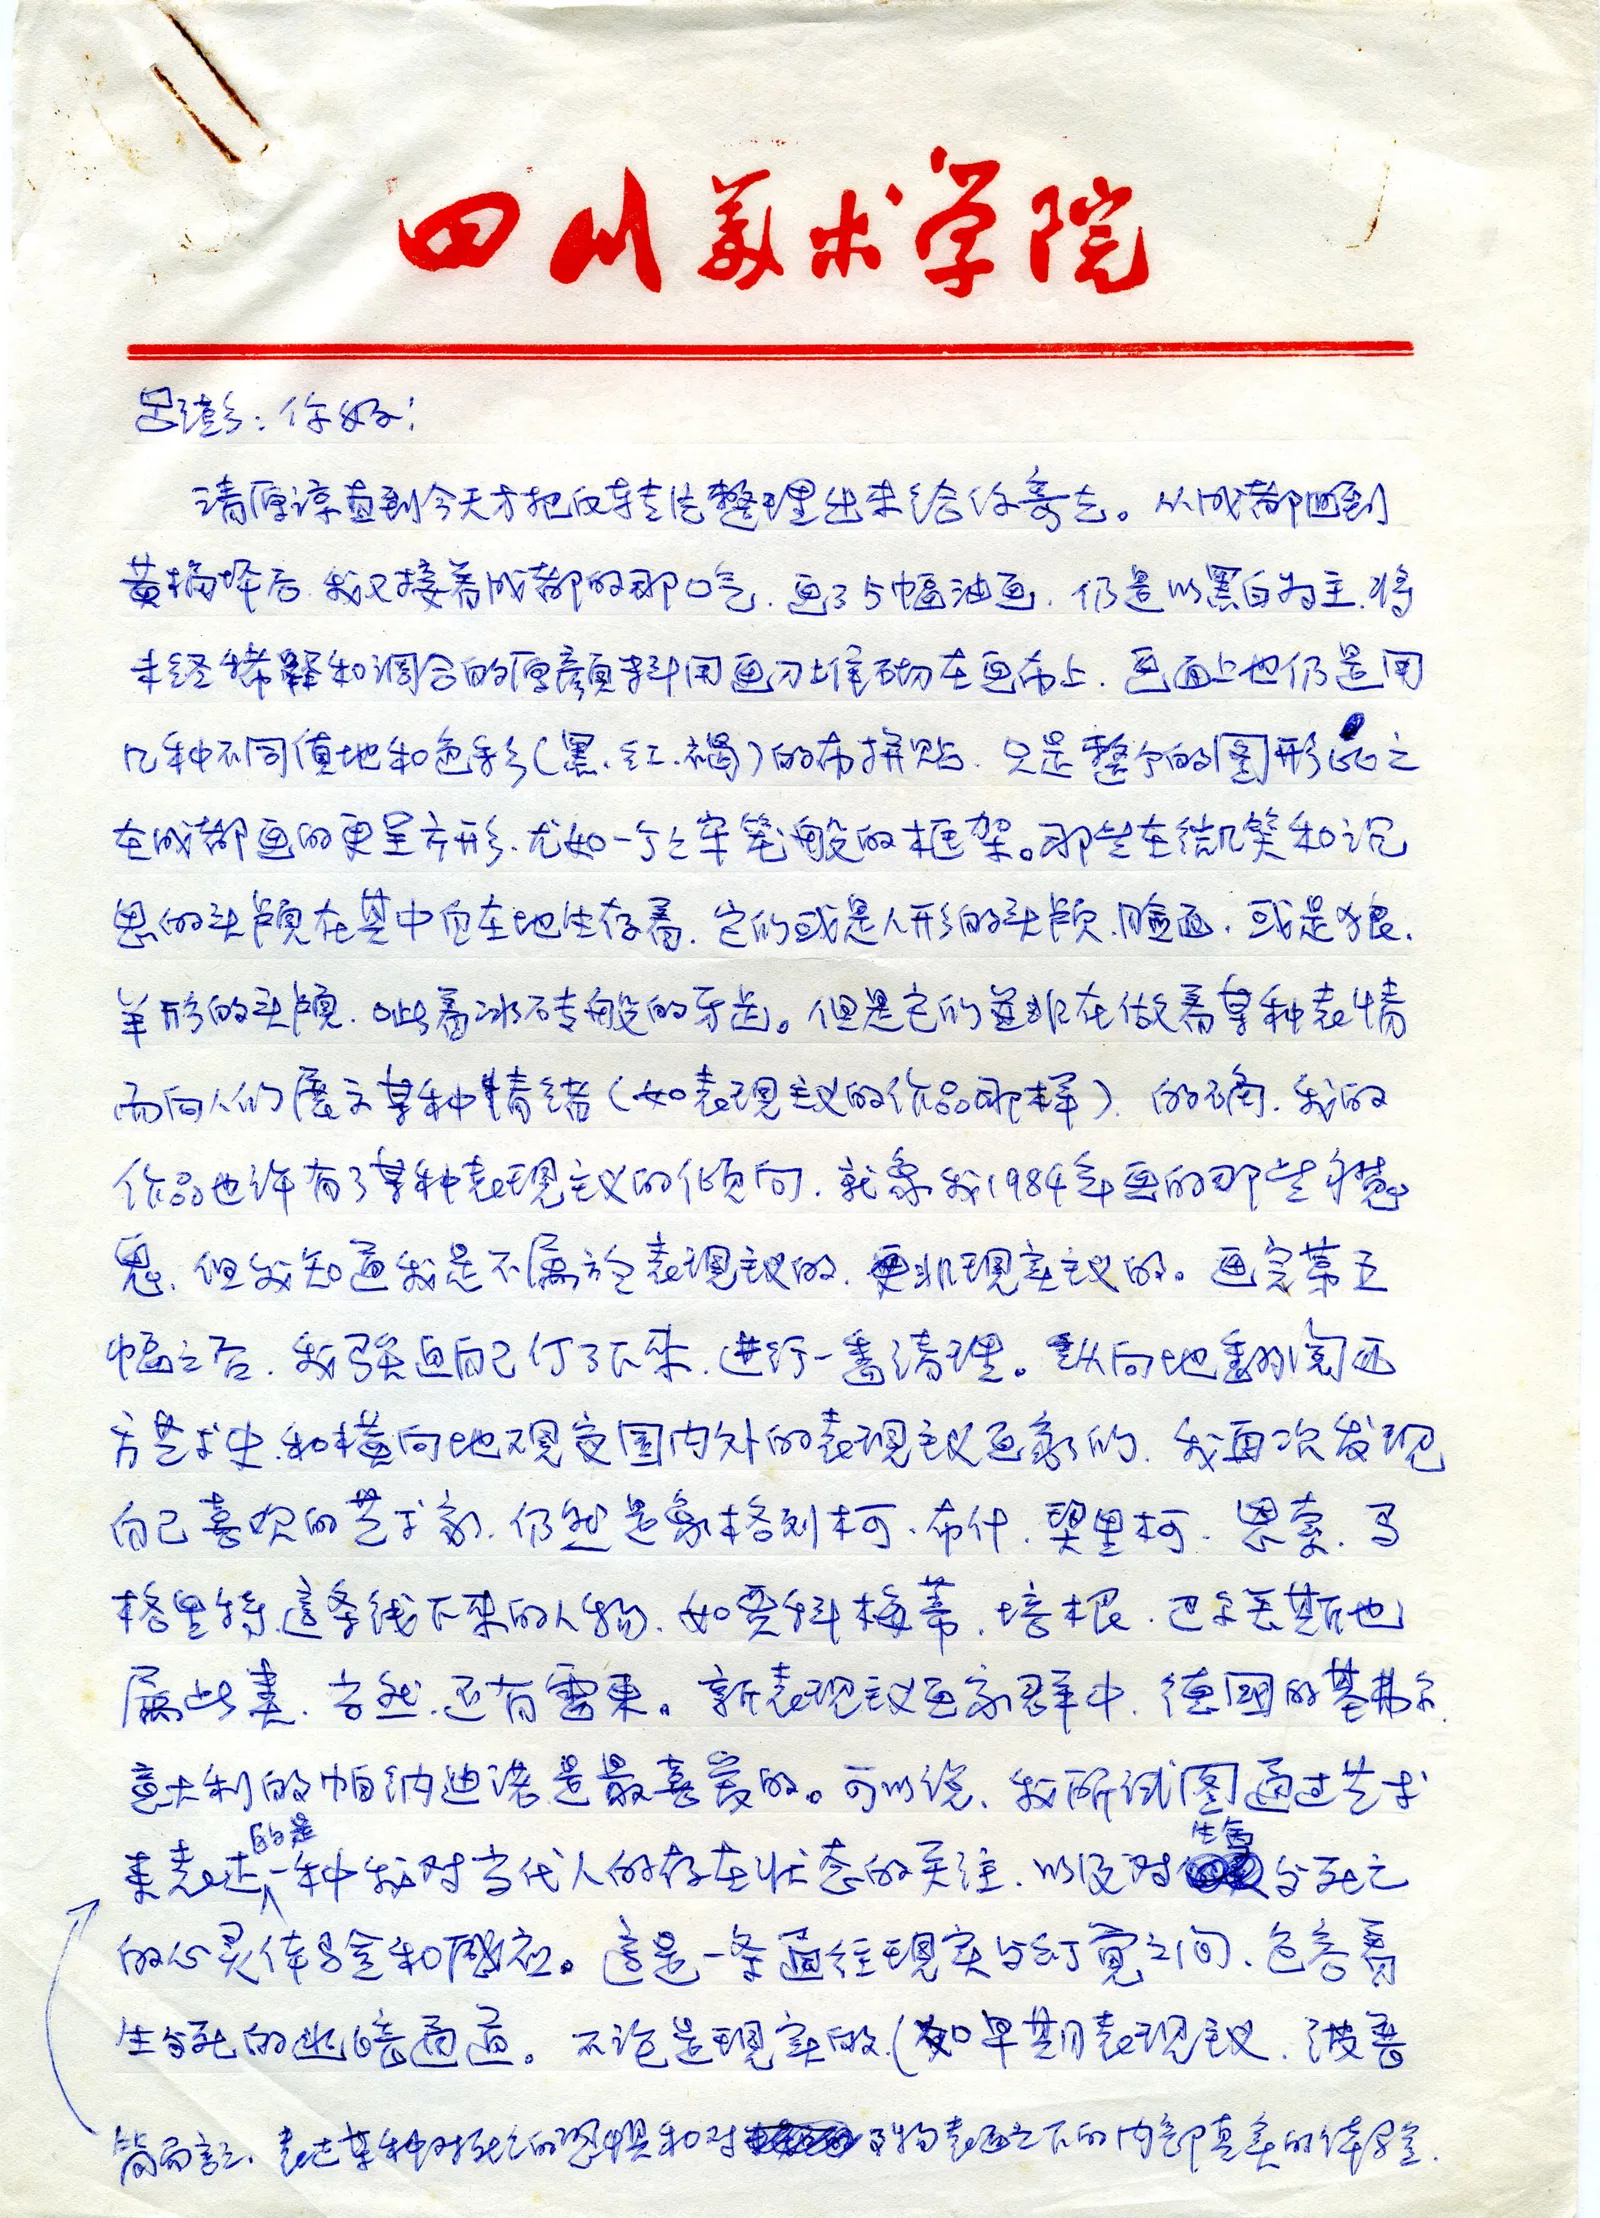 四川美术学院
吕澎：你好！
请原谅直到今天才把反转片整理出来给你寄去。从成都回到
黄桷坪后，我又接着成都的那口气，画了5幅油画，仍是以黑白为主，将
未经稀释和调合的原颜料用画刀堆砌在画布上，画面上也仍是用
几种不同质地和色彩（黑、红、褐）的布拼贴，只是整个的图形比之
在成都画的更呈方形，尤如一个个牢笼般的框架。那些在微笑和沉
思的头颅在其中自在地生存着，它们或是人形的头颅、脸面，或是狼、
羊形的头颅，呲着冰砖般的牙齿。但是它们并非在做着某种表情
而向人们展示某种情绪（如表现主义的作品那样），的确，我的
作品也许有了某种表现主义的倾向，就象我1984年画的那些
，但我知道我是不属于表现主义的，更非现实主义的。画完第五
幅之后，我强迫自己停了下来，进行一番清理。纵向地翻阅西
方艺术史，和横向地观变国内外的表现主义画家们，我再次发现
自己喜欢的艺术家，仍然是象格列柯、布什、契里柯、恩索、马
格里特，这条线下来的人物，如贾科梅蒂、培根、巴尔丢斯也
属此类，当然，还有雷东。新表现主义画家群中，德国的基弗尔，
意大利的帕纳迪诺是最喜爱的。可以说，我所试图通过艺术
来表达的是一种我对当代人的存在状态的关注，以及对生命与死亡
的心灵体验和感应。这是一条通往现实与幻觉之间，包容着
生与死的幽暗通道。不论是现实的（如早期表现主义、波普
简而言之，表达某种对死亡的恐惧和对事物表面之下的内部真实的体验。